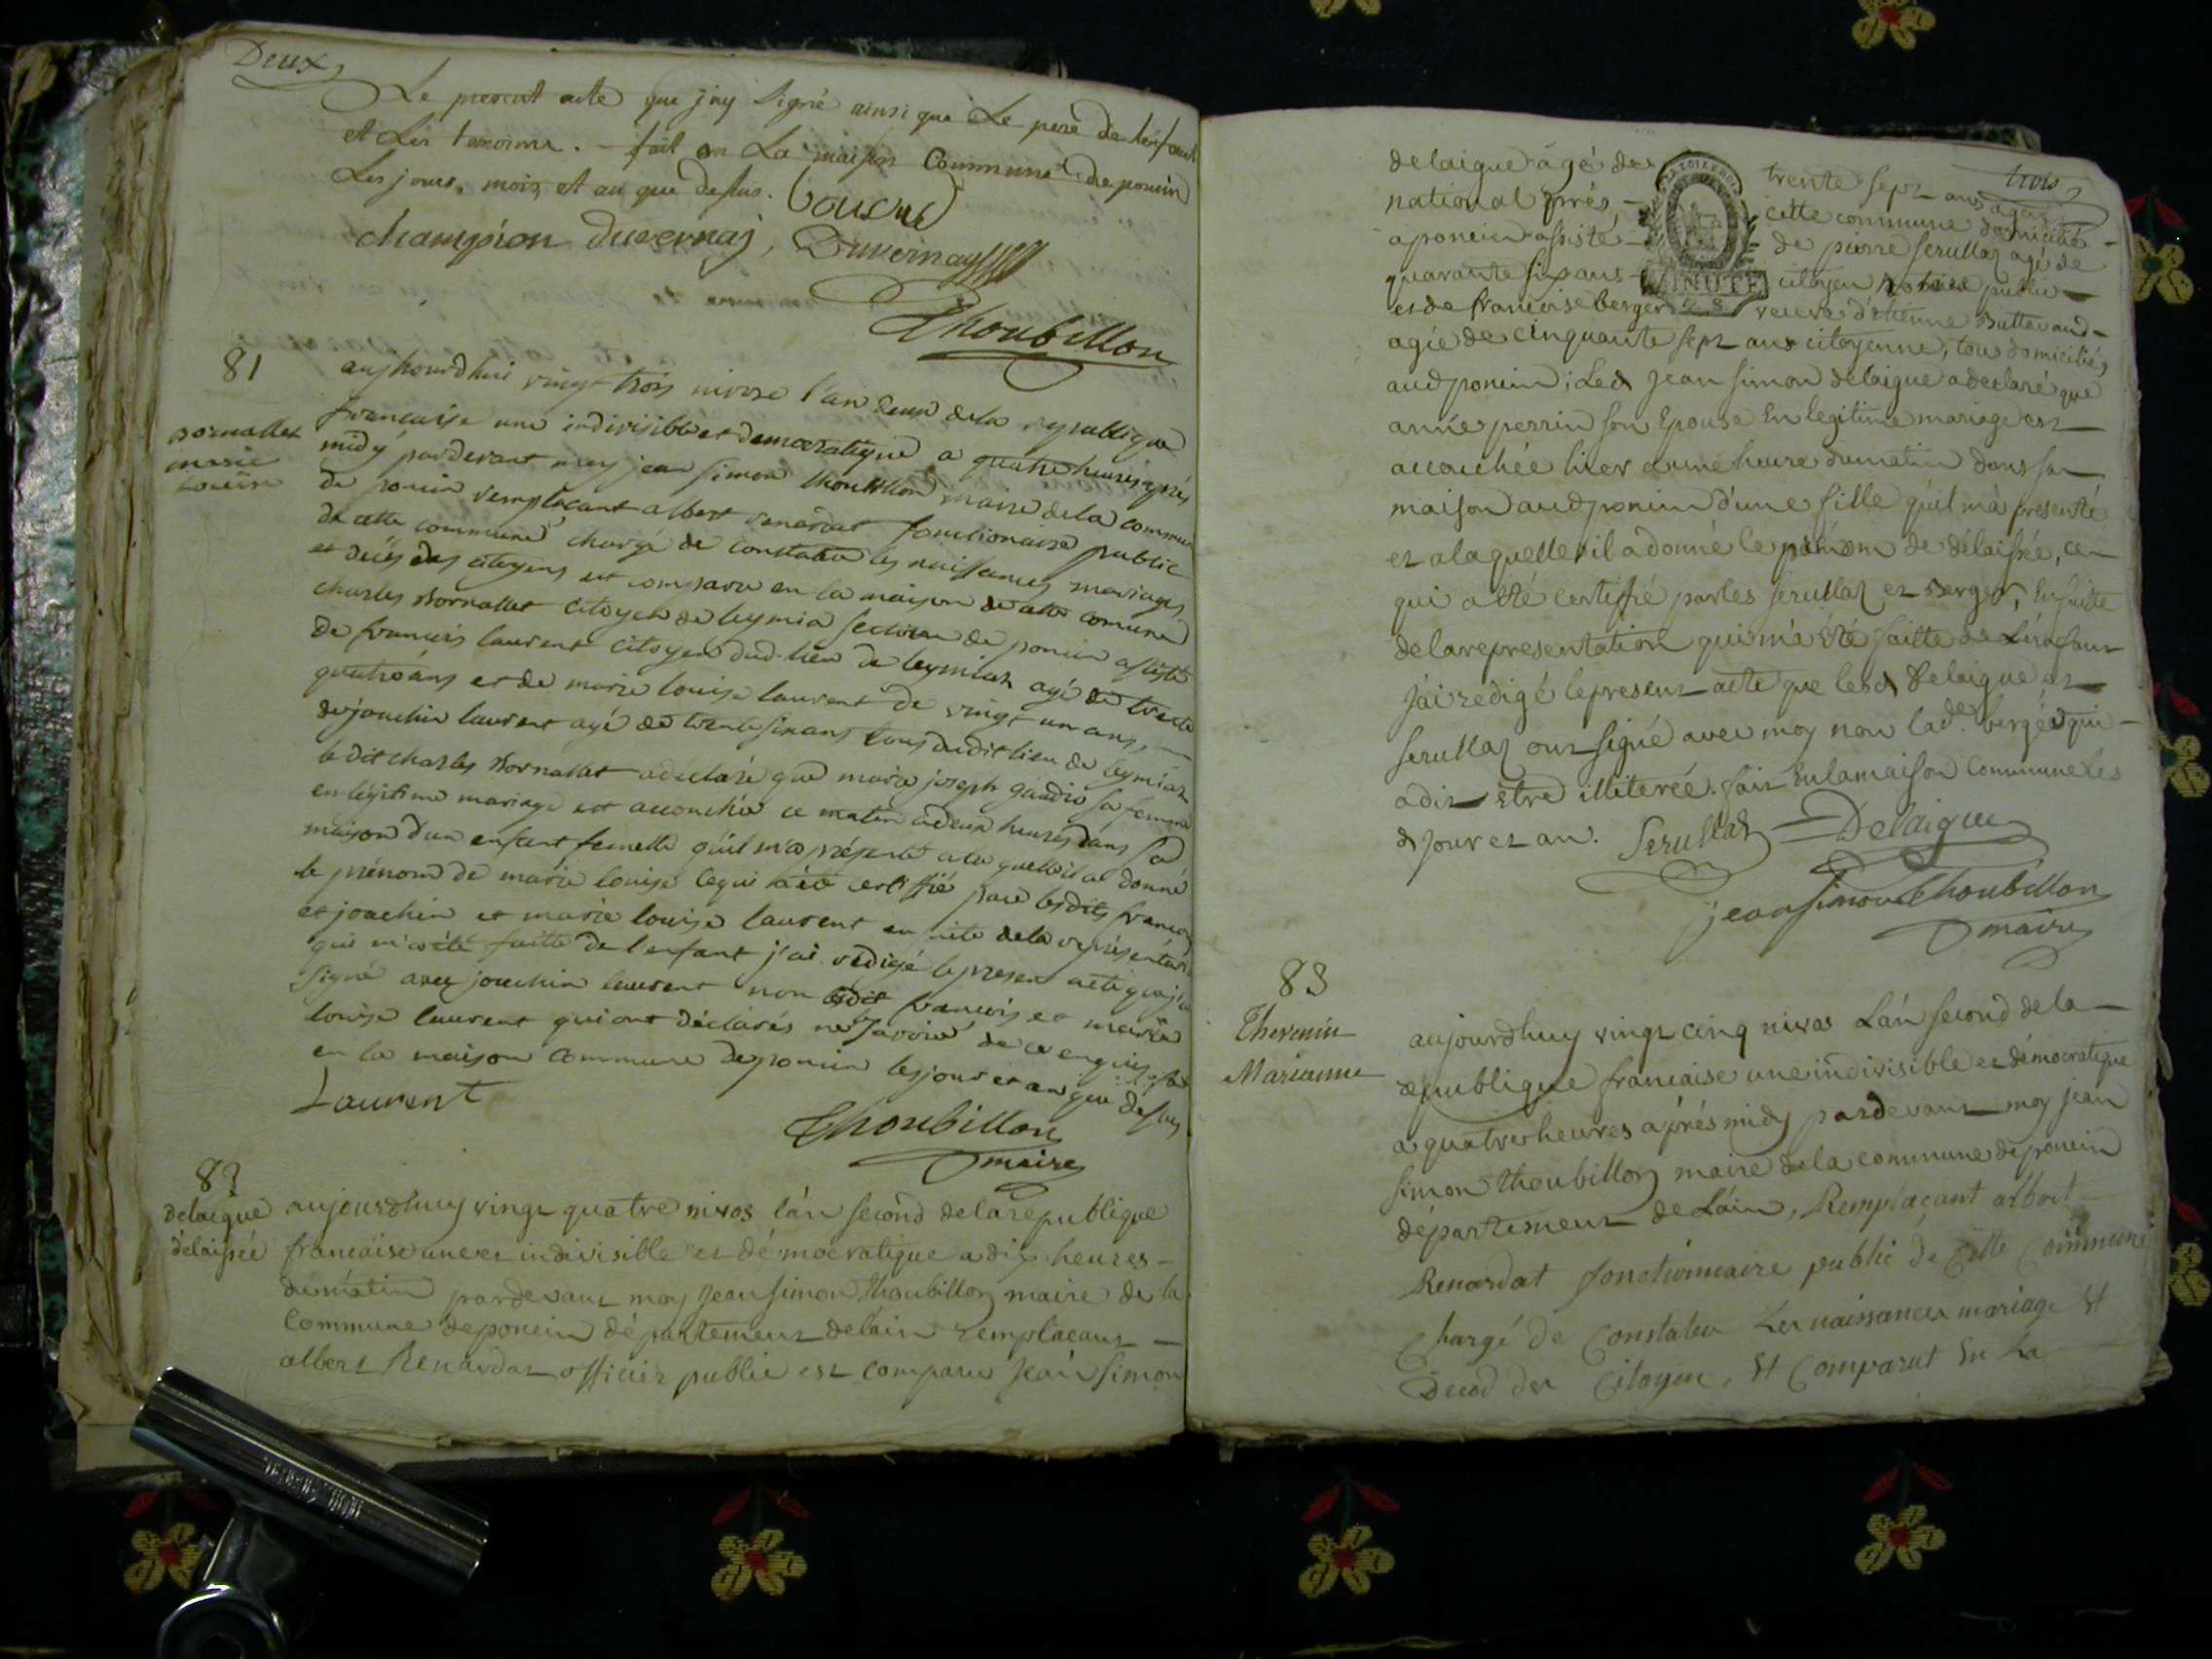 Deux
Le present acte que j'ay signé ainsi que Le pere de l'enfant
et Les temoins. - fait en La maison Commune de poncin
Les jours, mois, et an que dessus.
champion Duvernay, Duvernay
Thoubillon
81
aujhourdhui vingt trois nivose l'an deux dela republique
francaise une indivisible et democratique a quatre heures aprés
midÿ pardevant moy jean simon thoubillon maire dela commune
bornallet
marie
louise
de poncin remplacant albert renardat fonctionaire public
de cette commune chargé de constater les naissances mariages
et décés des citoyens est comparu en la maison de cette comune
charles Bornallet citoyen de leymia section de poncin assisté
de francois laurent citoyen dud. lieu de leymiat agé de trente
quatre ans et de marie louise laurent de vingt un ans,
de jouchin laurent agé de trente six ans tous dudit lieu de leymiat
le dit charles Bornallet a déclaré que marie joseph gaudio sa femme
en légitime mariage est accouchée ce matin a deux heures dans sa
maison d'un enfant femelle qu'il m'a présenté a la quelle il a donné
le prénom de marie louise ce qui a été certiffié par lesdits francois
et joachin et marie louise laurent en suite de la représentation
qui m'a été faitte de l'enfant j'ai rédigé le present acte que j'ai
signé avec jouchin laurent non lesdit francois et marie
louise laurent qui ont déclarés ne savoir de ce enquis fait
en la maison commune de poncin les jour et an que dessus
Laurent
Thoubillon
maire
82
delaigue
délaissée
aujourdhuy vingt quatre nivos l'án second de la republique
francaise une et indivisible et démocratique a dix heures -
du matin pardevant moy Jean Simon thoubillon maire de la
Commune de poncin département delain remplacant -
albert Renardat officier public est comparu Jean Simon
trois
delaigue âgé de trente sept ans agent
national prés, - cette commune domicilié -
a poncin assisté - de pierre serullaz agé de
quarante six ans - citoyen notaire public -
MINUTE
et de francoise berger veuve d'etienne Buttavand -
agée de cinquante sept ans citoyenne, tous domiciliés
aud poncin; Led. Jean simon delaigue a declaré que
année perrin son Epouse En legitime mariage est
accouchée hier a une heure du matin dans sa
maison aud poncin d'une fille qu'il m'a presenté
et a laquelle il a donné le prénom de délaissée, ce
qui a été certiffié par les serullaz et berger, Ensuitte
de la representation qui m'a été faitte de L'enfant
J'ai redigé le present acte que lesd. delaigue et
serullaz ont signé avec moy non lad. bergér qui -
a dit etre illiterée. fait En la maison Commune Les
d jour et an. Serullaz Delaigue
jean simon Thoubillon
maire
83
Thevenin
Marianne
aujourdhuy vingt cinq nivos L'án second de la -
republique francaise une indivisible et démocratique
a quatre heures aprés midy pardevant moy jean
simon thoubillon maire de la commune de poncin
département de L'ain, Remplaçant albert
Renardat fonctionnaire public de Cette Commune
Chargé de Constater Les naissances mariage Et
Deced des Citoyens, Et Comparut En La